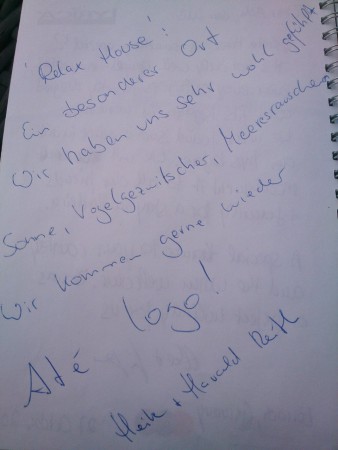 'Relax House'!
Ein besonderer Ort
Wir haben uns sehr wohl gefühlt
Sonne, Vogelgezwitscher, Meeresrauschen
Wir kommen gerne wieder
logo!
Até
Heike + Harald